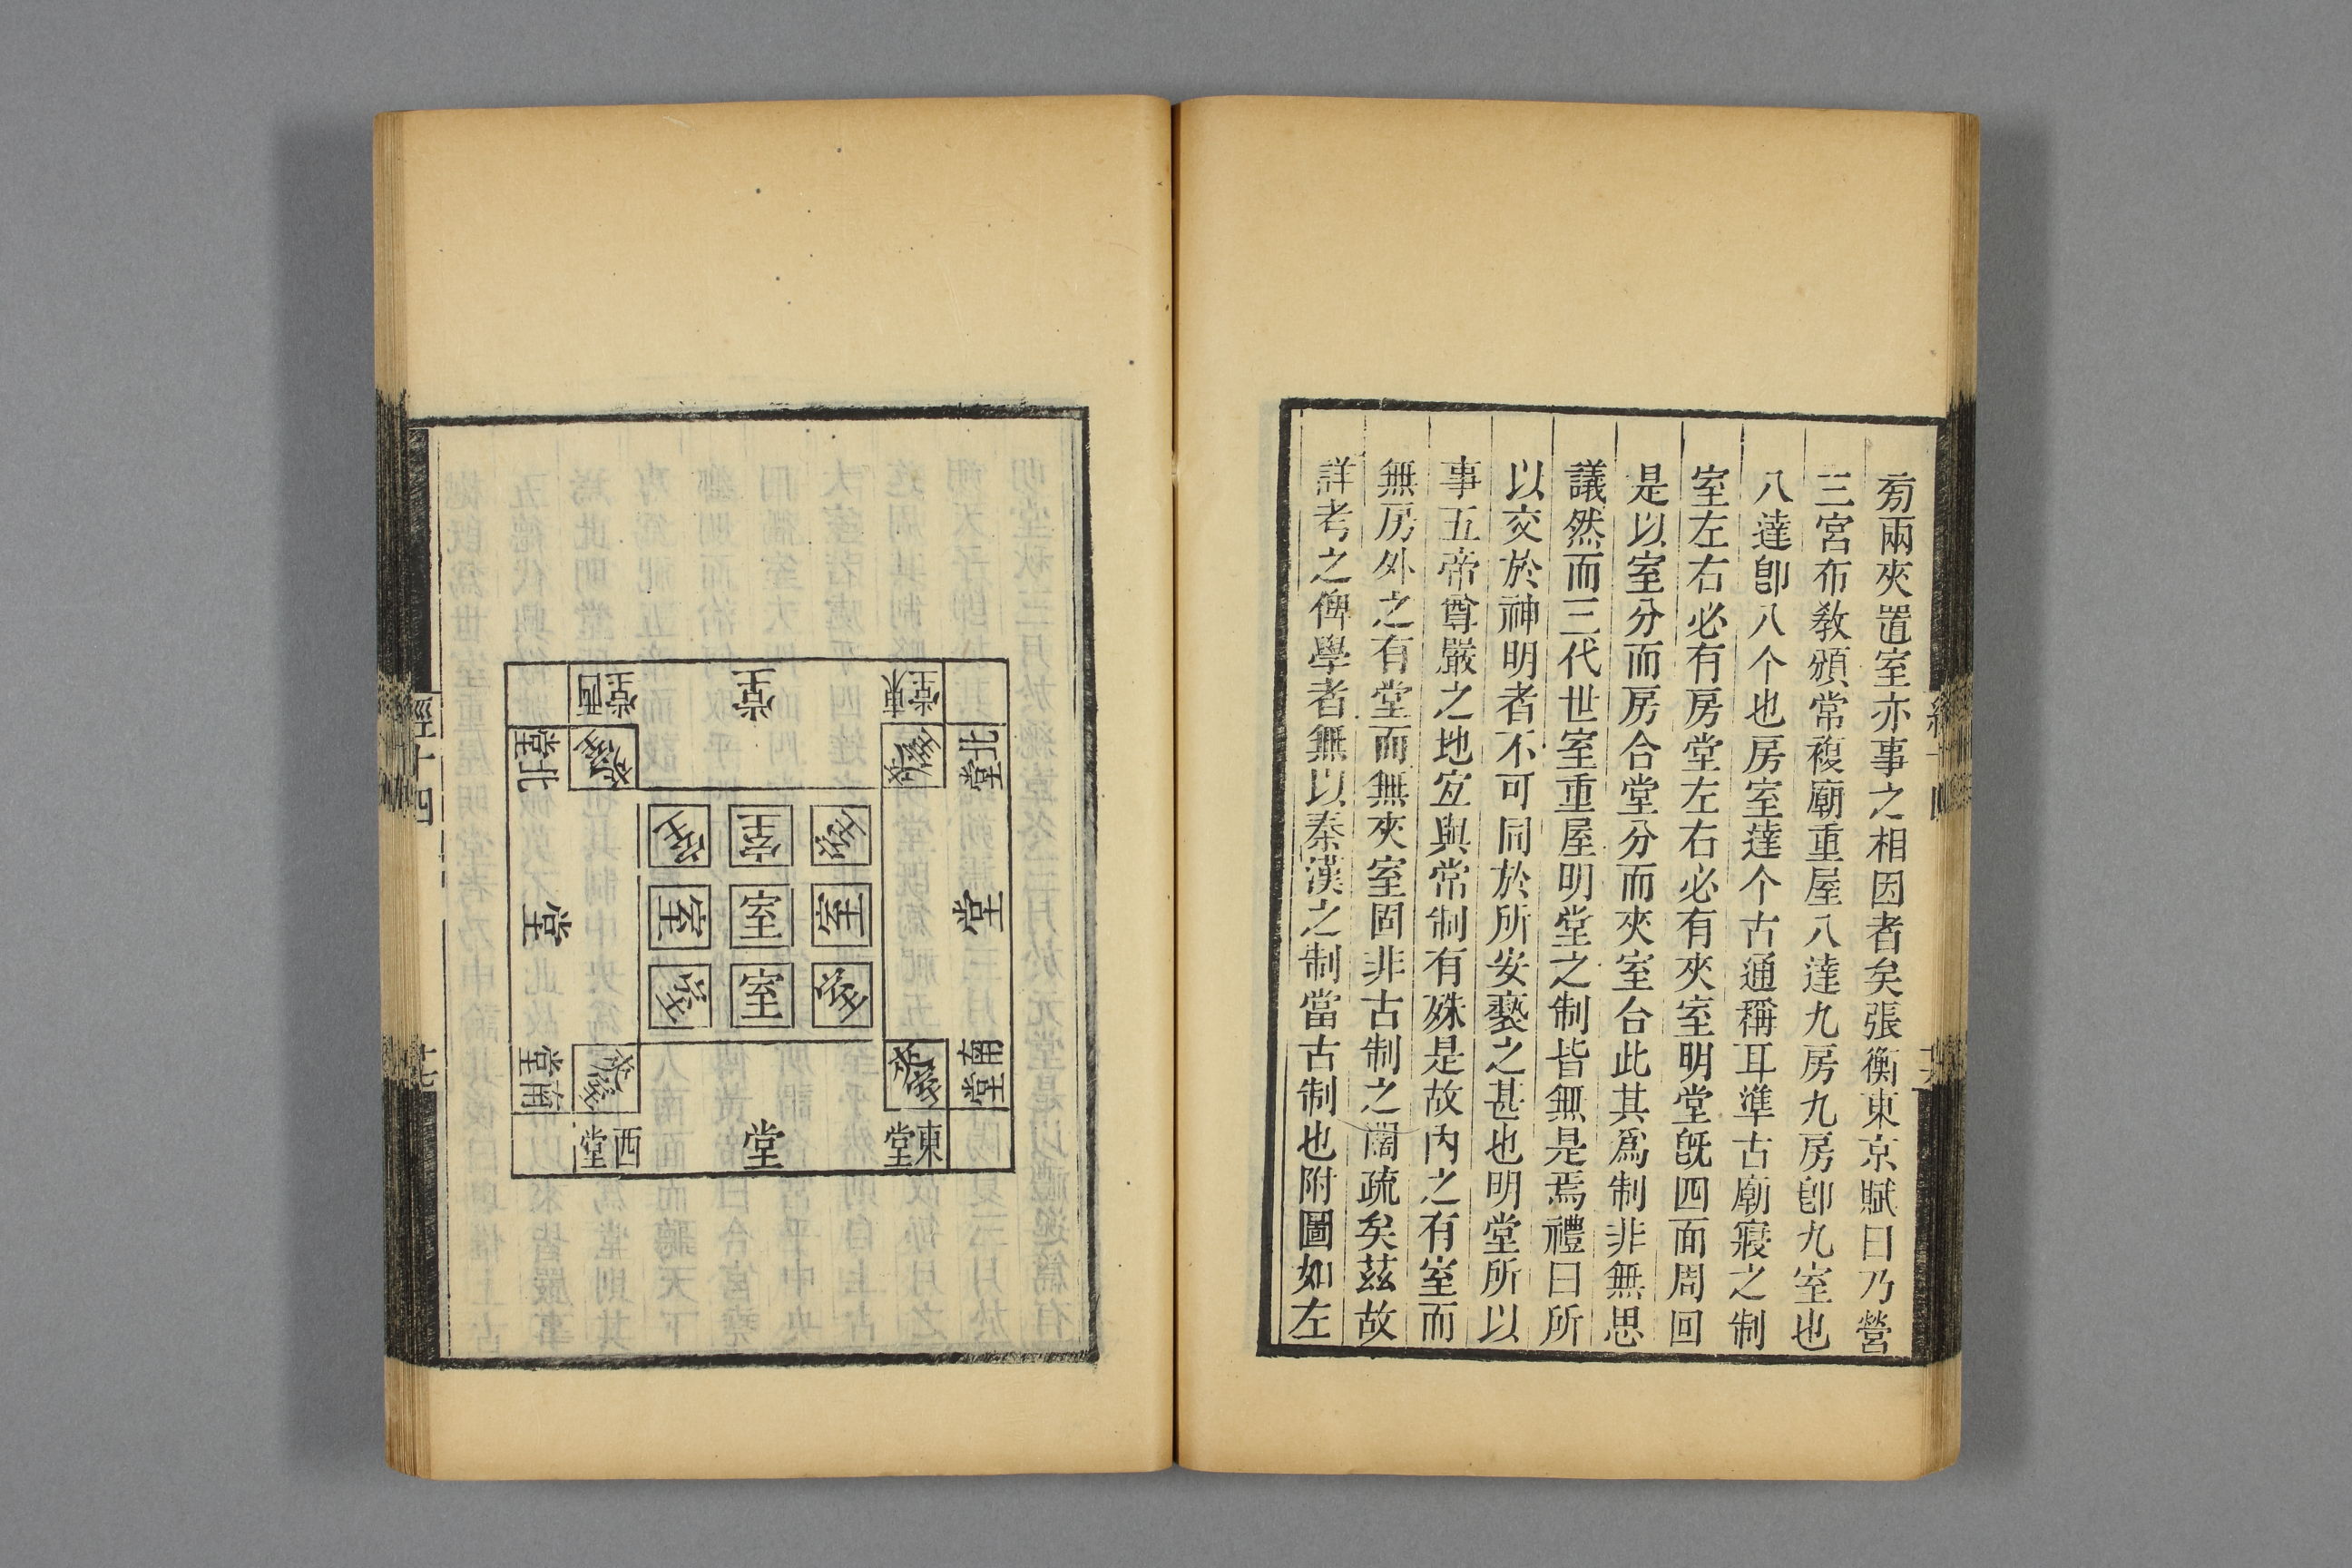 㫄兩夾置室亦事之相因者矣張衡東京賦曰乃營
三宮布敎頒常複廟重屋八達九房九房卽九室也
八達卽八个也房室達个古通稱耳準古廟寢之制
室左右必有房堂左右必有夾室明堂旣四面周回
是以室分而房合堂分而夾室合此其爲制非無思
議然而三代世室重屋明堂之制皆無是焉禮曰所
以交於神明者不可同於所安褻之甚也明堂所以
事五帝尊嚴之地宐與常制有殊是故內之有室而
無房外之有堂而無夾室固非古制之闊疏矣茲故
詳考之俾學者無以秦漢之制當古制也附圖如左
東堂
堂
西堂
北堂
夾室
夾室
北堂
室
室
室
堂
室
室
室
堂
室
室
室
南堂
夾室
夾室
南堂
東堂
堂
西堂
經十四